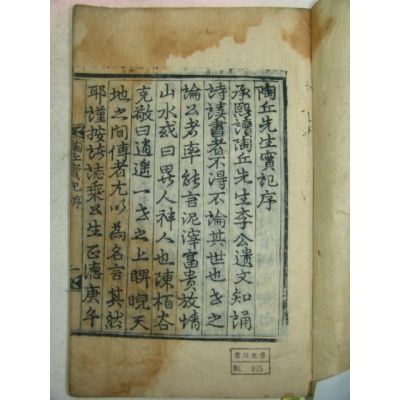 陶丘先生實記序
承熙讀陶丘先生李公遺文知誦
詩讀書者不得不論其世也世之
論公者率能言泥滓富貴放情
山水或曰異人神人也陳栢谷
克敬曰逍遙一世之上睥睨天
地之間傳者尤以為名言其然
耶謹按誌乘公生正德庚午
陶丘實記序
一
No. 835